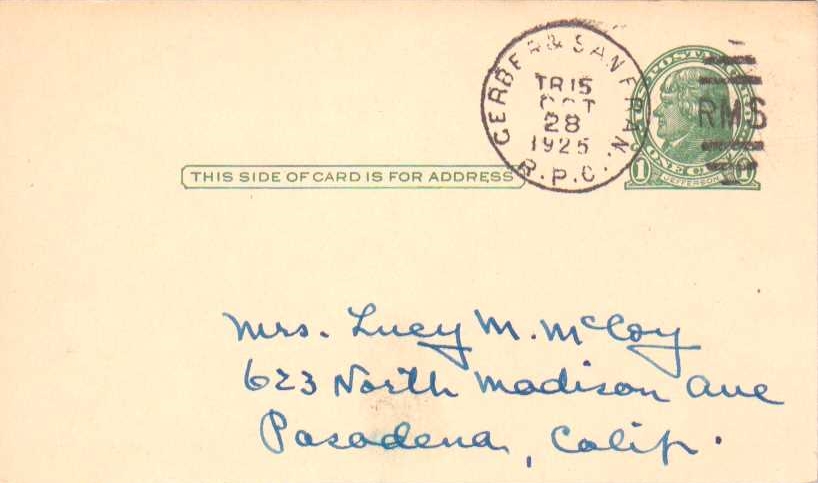 GERBER & SAN FRAN.
TR 15
OCT
28
1925
R.P.O.
RMS
1 ONE 1
JEFFERSON
THIS SIDE OF CARD IS FOR ADDRESS
Mrs. Lucy M. McCloy
623 North Madison Ave
Pasadena, Calif.